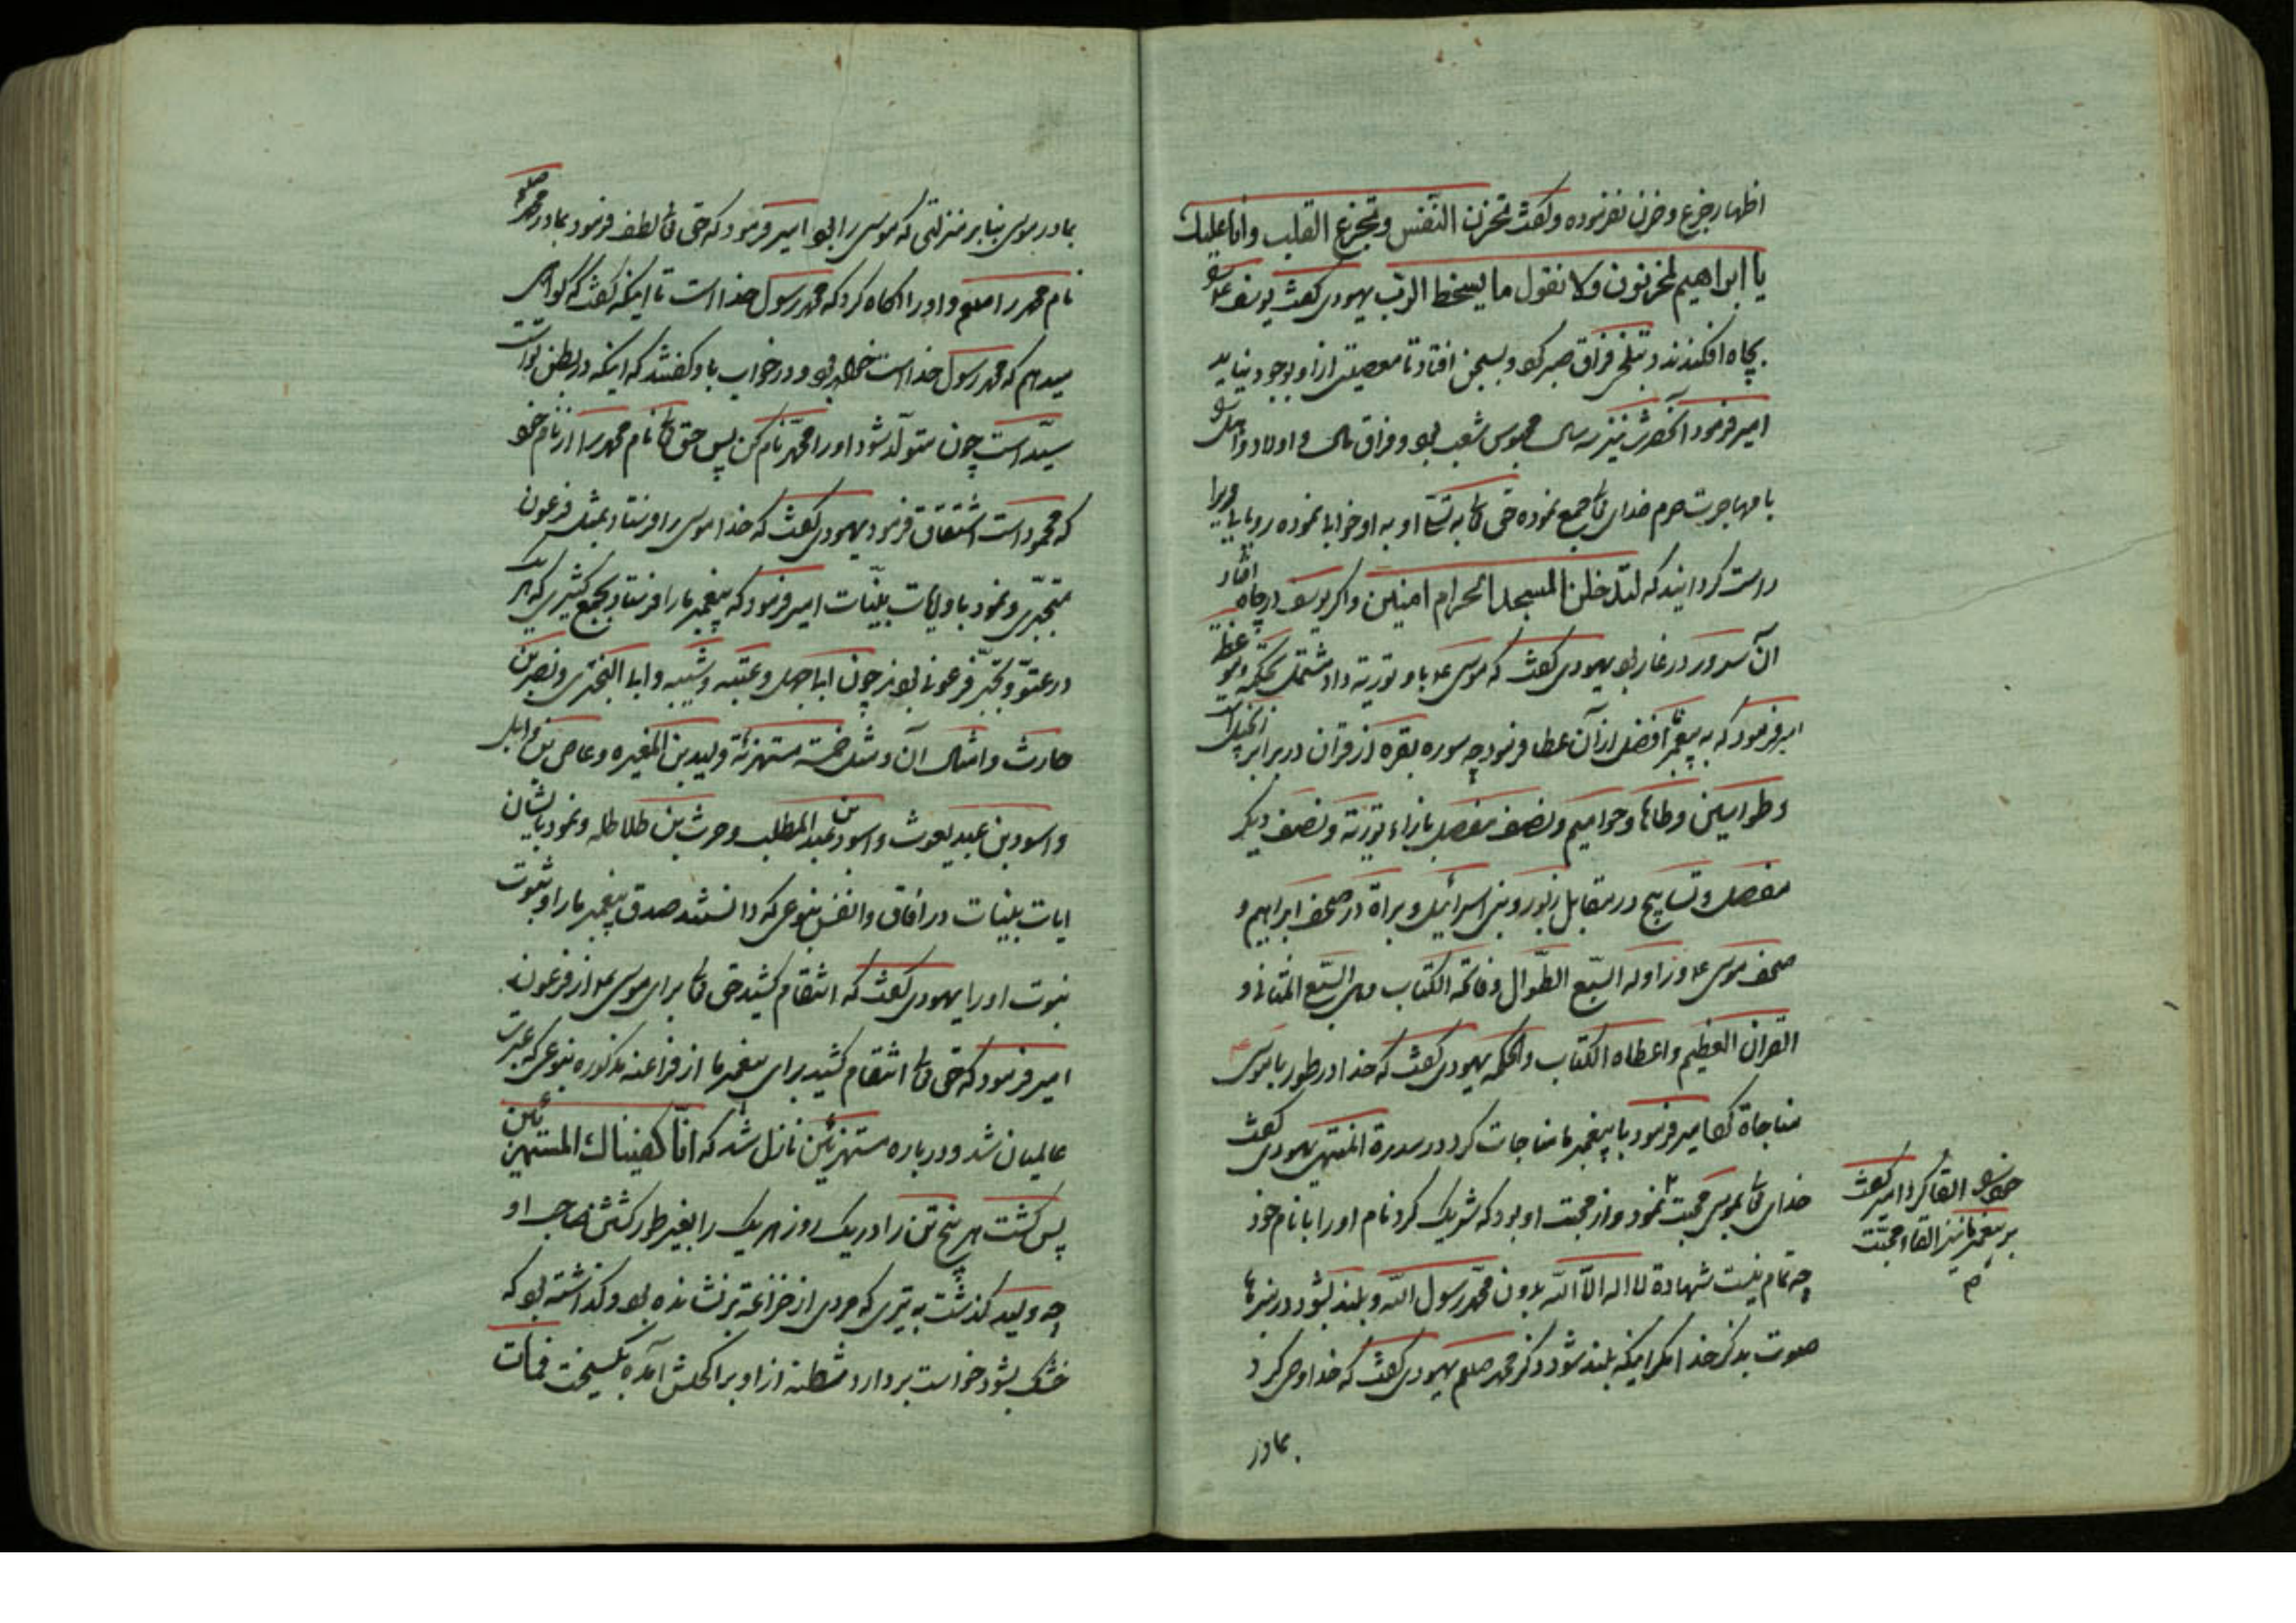 اظهار جزع و حزن نفرموده و گفت تحزن النفس و تجزع القلب و انا علیك
یا ابراهیم لمحزنون و لا نقول ما یسخط الرب یهودی گفت یوسف را
بچاه افکندند و بتلخی فراق صبر کرد و بسجن افتاد تا معصیتی از او بوجود نیاید
امیر فرمود آنحضرت نیز سه سال محبوس شعب بود و فراق مال و اولاد و اهل را
با مهاجرت حرم خدای تعالی جمع نموده حق تعالی او خوابا نموده رویا
راست گردانید که لتدخلن المسجد الحرام امنین و اگر یوسف در چاه افتاد
آن سرور در غار بود یهودی گفت که موسی ع باو توریة داد مشتمل بحکم و موعظه
امیر فرمود که به پیغمبر ما افضل از آن عطا فرمود چه سوره بقره از قرآن در برابر انجیل است
و طواسین و طاها و حوامیم و نصف مفصل بازاء توریة و نصف دیگر
مفصل و تسابیح در مقابل زبور و بنی اسرائیل و براة در صحف ابراهیم و
صحف موسی ع و زاد له السبع الطوال و فاتحة الکتاب وهی السبع المثانی و
القران العظیم و اعطاه الکتاب والحکمة یهودی گفت که خدا در طور با موسی
مناجاة کرد امیر فرمود با پیغمبر ما مناجات کرد در سدرة المنتهی یهودی گفت
خدای تعالی بموسی محبت نمود و از محبت او بود که شریک کرد نام او را با نام خود
چه تمام نیست شهادة لا اله الا الله بدون محمد رسول الله و بلند نشود در منبرها
صوت بذکر خدا مگر اینکه بلند شود ذکر محمد صلعم یهودی گفت که خدا وحی کرد
بمادر
القا کرد امیر گفت
بر پیغمبر ما نیز القاء محبت
م
بمادر موسی بنابر منزلتی که موسی را بود امیر فرمود که حق تعالی لطف فرمود بمادر محمد صلعم
نام محمد را صلعم و او را اگاه کرد که محمد رسول خدا است تا اینکه گفت که گواهی
میدهم که محمد رسول خدا است خواهد بود و در خواب باو گفتند که اینکه در بطن تو است
سید است چون متولد شود او را محمد نام کن پس حق تعالی نام محمد را از نام خود
که محمود است اشتقاق فرمود یهودی گفت که خدا موسی را فرستاد بمثل فرعون
متجبری و نمود باو ایات بینات امیر فرمود که پیغمبر ما را فرستاد بجمع کثیری که هر یک
در عتو و تجبر فرعونی بودند چون ابا جهل و عتبه و شیبه و ابا البختری و نصر بن
حارث و امثال آن و مثل خمسة مستهزئة ولید بن المغیره و عاص بن وایل
و اسود بن عبد یغوث و اسود بن عبد المطلب و حرث بن طلاطله و نمود بایشان
ایات بینات در افاق و انفس بنوعی که دانستند صدق پیغمبر ما را و ثبوت
نبوت او را یهودی گفت که انتقام کشید حق تعالی برای موسی ع از فرعون
امیر فرمود که حق تعالی انتقام کشید برای پیغمبر ما از فراعنه مذکوره بنوعی که عبرت
عالمیان شد و درباره مستهزئین نازل شد که انا کفیناك المستهزئین
پس کشت هر پنج تن را در یک روز هر یک را بغیر طور کشتن صاحب او
چه ولید گذشت به تیری که مردی از خزاعة پر نشانده بود و گذاشته بود که
خشک بشود خواست بردارد شظیه از او بر اکحلش آمده بگسیخت فمات